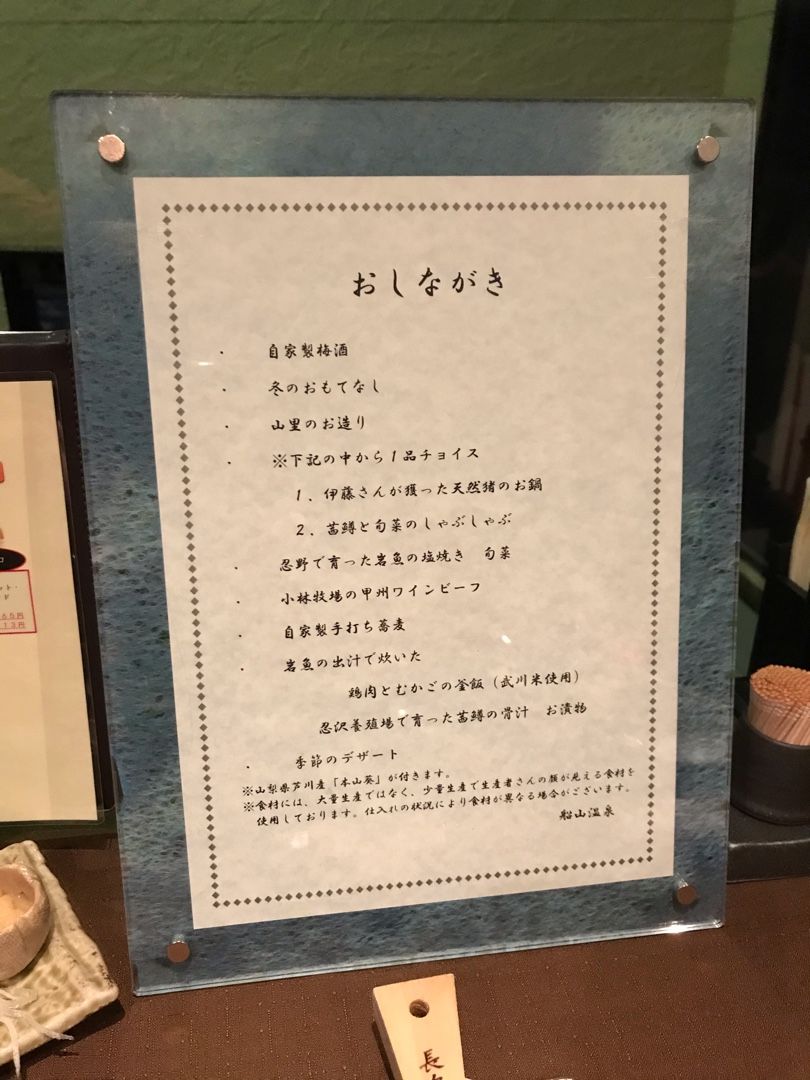 おしながき
・ 自家製梅酒
・ 冬のおもてなし
・ 山里のお造り
・ ※下記の中から1品チョイス
1、伊藤さんが獲った天然猪のお鍋
2、茜鱒と旬菜のしゃぶしゃぶ
・ 忍野で育った岩魚の塩焼き 旬菜
・ 小林牧場の甲州ワインビーフ
・ 自家製手打ち蕎麦
・ 岩魚の出汁で炊いた
鶏肉とむかごの釜飯（武川米使用）
忍沢養殖場で育った茜鱒の骨汁 お漬物
・ 季節のデザート
※山梨県芦川産「本山葵」が付きます。
※食材には、大量生産ではなく、少量生産で生産者さんの顔が見える食材を
使用しております。仕入れの状況により食材が異なる場合がございます。
船山温泉
長